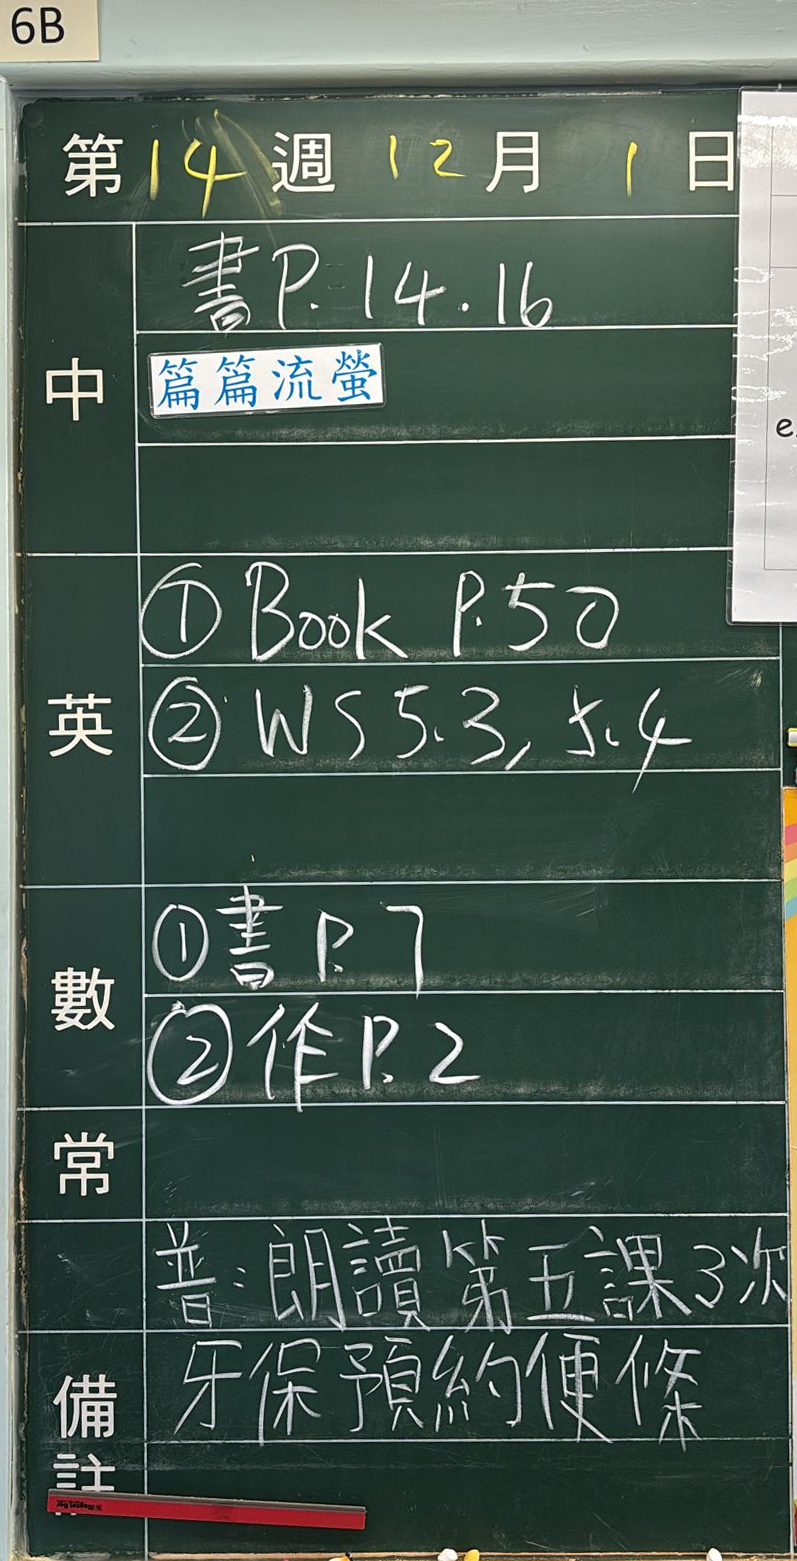 6B
第14週 12月 1日
中
書P. 14.16
篇篇流螢
英
① Book P.50
② WS 5.3, 5.4
數
①書 P.7
②作P.2
常
普:朗讀第五課3次
備註
牙保預約便條